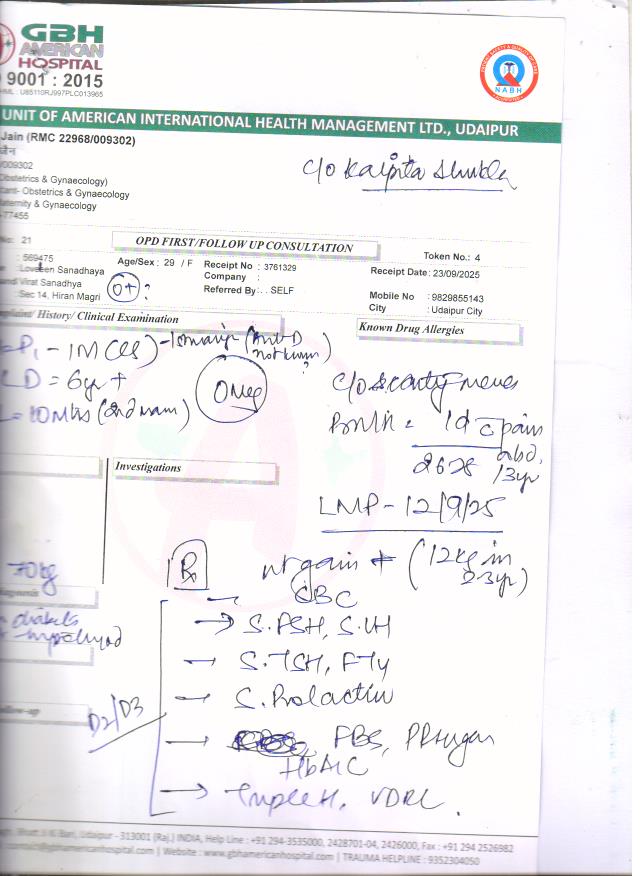 GBH
AMERICAN
HOSPITAL
9001 : 2015
HML : U85110RJ997PLC013965
NABH
UNIT OF AMERICAN INTERNATIONAL HEALTH MANAGEMENT LTD., UDAIPUR
Jain (RMC 22968/009302)
जैन
/009302
Obstetrics & Gynaecology)
tant- Obstetrics & Gynaecology
aternity & Gynaecology
-77455
c/o Kalpita Shukla
No: 21
OPD FIRST/FOLLOW UP CONSULTATION
Token No.: 4
: 569475
Age/Sex : 29 / F
Receipt No : 3761329
Receipt Date: 23/09/2025
: Loveleen Sanadhaya
Company :
and Virat Sanadhya
O+ ?
Referred By : . . SELF
Mobile No : 9829855143
: Sec 14, Hiran Magri
City : Udaipur City
mplaint/ History/ Clinical Examination
Known Drug Allergies
P1 - 1M (CS) - 10
not known ?
D = 6yr +
O Neg
= 10 Mths (2nd
c/o scanty menses
= 1d c pain
abd.
26-28 /3yr
Investigations
LMP - 12/9/25
70kg
Rx
wt gain + (12 kg in
2-3 yr)
CBC
iagnosis
diabetes
S. FSH, S. LH
S. TSH, FT4
S. Prolactin
ollow-up
D2/D3
FBS, PP Sugar
HbA1C
Triple H, VDRL.
gh, Bhatt Ji Ki Bari, Udaipur - 313001 (Raj.) INDIA, Help Line : +91 294-3535000, 2428701-04, 2426000, Fax : +91 294 2526982
contact@gbhamericanhospital.com | Website : www.gbhamericanhospital.com | TRAUMA HELPLINE : 9352304050